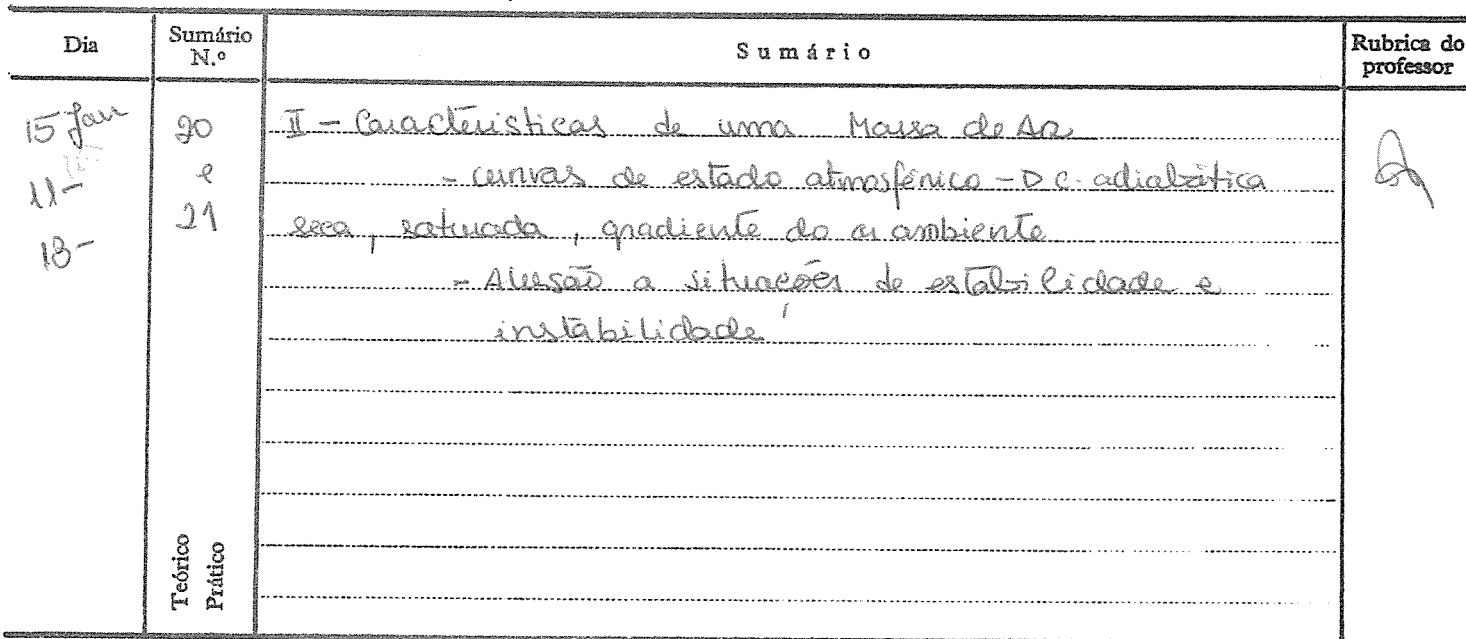 Dia Sumário N.º Sumário Rubrica do professor
15 Jan 20 II - Características de uma Massa de Ar
11- e - curvas de estado atmosférico - D c. adiabática
13- 21 seca, saturada, gradiente do ar ambiente
- Alusão a situações de estabilidade e
instabilidade
Teórico
Prático